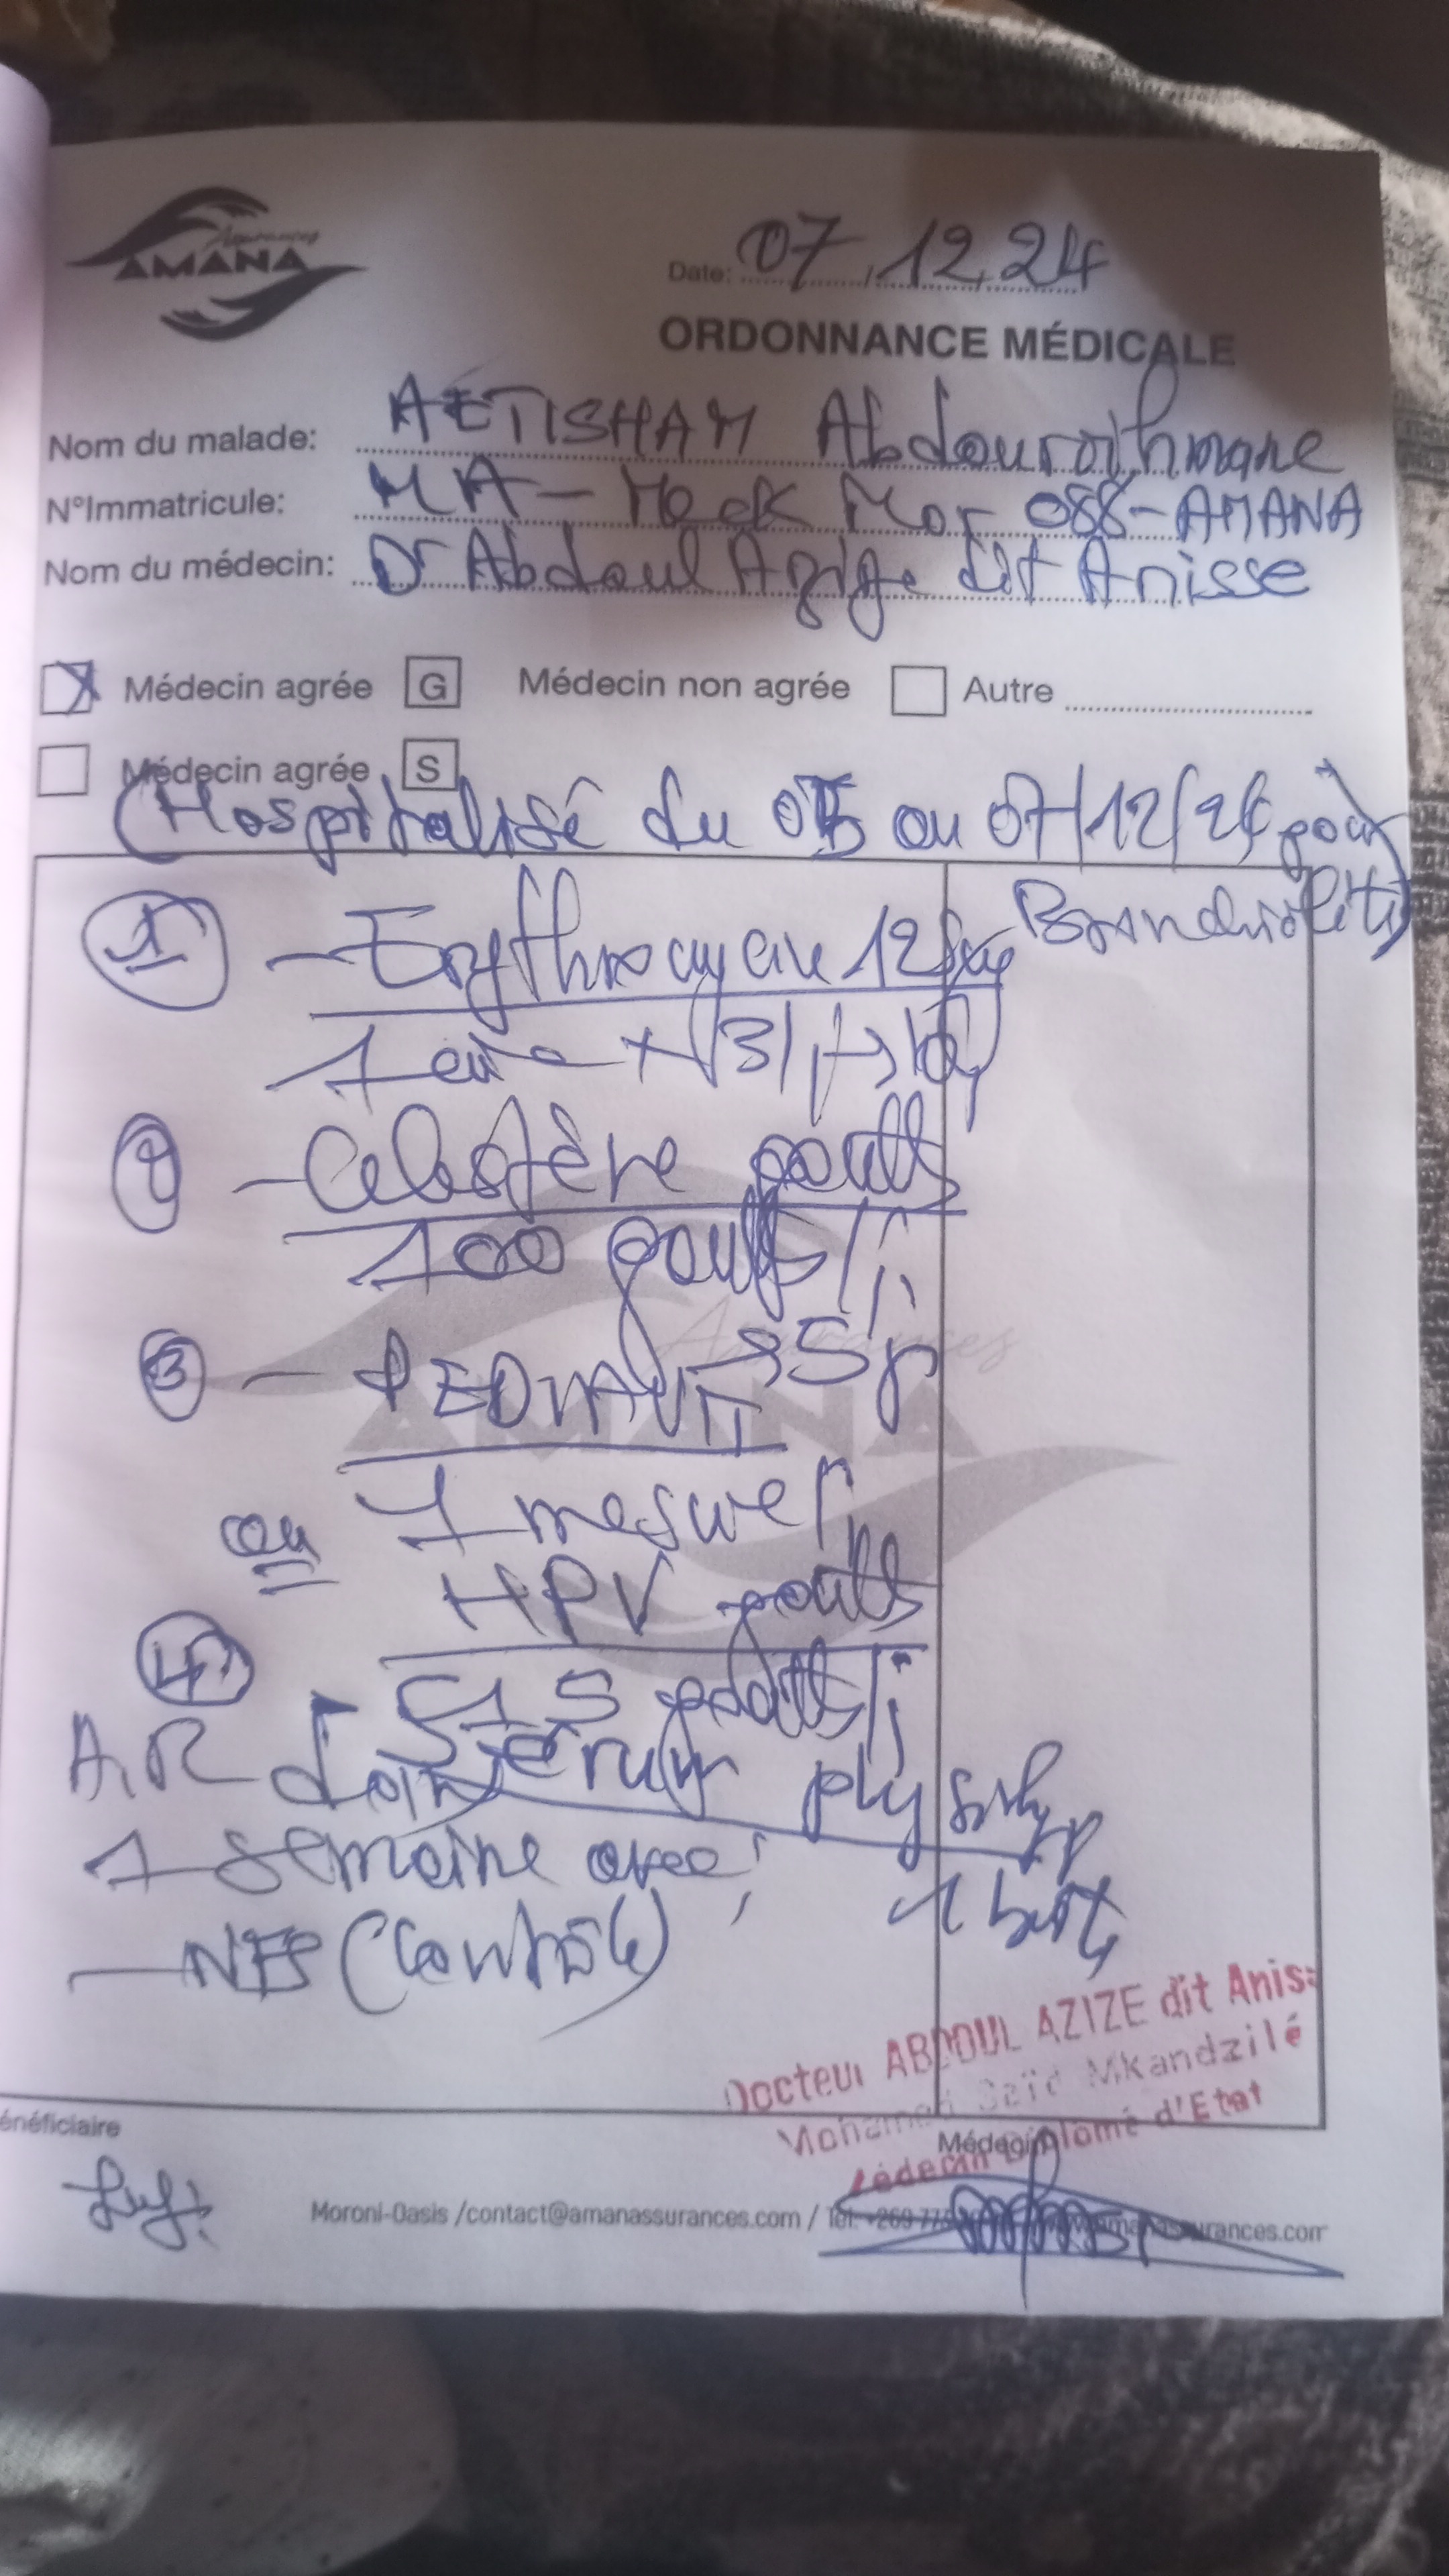 Assurances
AMANA
Date: 07/12/24
ORDONNANCE MÉDICALE
Nom du malade: AETISHAM Abdouroihmane
N°Immatricule: MA-Meck Mor 088-AMANA
Nom du médecin: Dr Abdoul Azize dit Anisse
Médecin agrée G Médecin non agrée Autre
Médecin agrée S
(Hospitalisé du 05 au 07/12/24 pour
Bronchiolite)
1 - Erythromycine
1 x 3/j →
2 - goutts
100 goutts/j
→ 5j
3 -
1 mesure/j
ou
HPV goutts
15 goutts/j
4 - Serum physiolog
1 boite
A,R dans
1 semaine avec:
- NFS (Contrôle)
Docteur ABDOUL AZIZE dit Anis
Mohamed Saïd Mkandzilé
Médecin Diplômé d'Etat
énéficiaire
Médecin
Moroni-Oasis /contact@amanassurances.com / Tel: +269 77 amanassurances.com